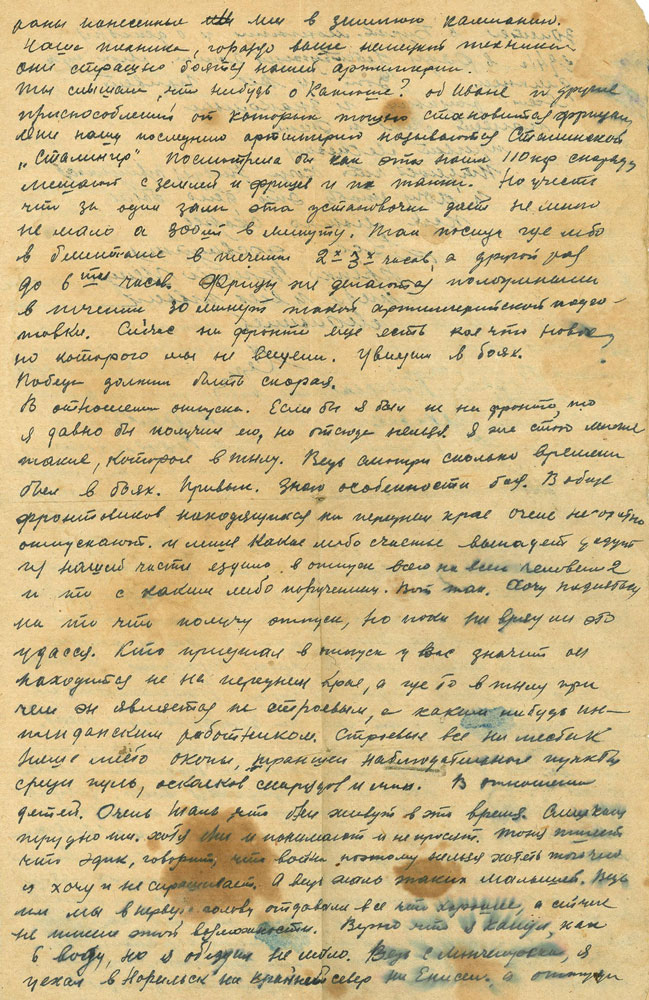 раны нанесенные им в зимнюю кампанию.
Наша техника, гораздо выше немецкой техники
они страшно боятся нашей артиллерии.
Ты слышала, что нибудь о Катюше? об Иване и другие
приспособлений от которых тошно становится фрицам,
нашу последнюю артиллерию называются Сталинской
"Сталинир" Посмотрела бы как эта наши 110 кгр снаряды
мешают с землей и фрицев и их танки. Но учесть
что за один залп эта установочка дает не много
не мало а 300 шт в минуту. Так посиди где либо
в блиндаже в течении 2х 3х часов, а другой раз
до 6ти часов. Фрицы же делаются полоумными
в течении 30 минутной такой артиллерийской подго-
товки. Сейчас на фронте еще есть кое что новое,
но которого мы не видели. Увидим в боях.
Победа должна быть скорая.
В отношении отпуска. Если бы я был не на фронте, то
я давно бы получил его, но отсюда нельзя. Я же стою многие
такие, которые в тылу. Ведь смотри сколько времени
был в боях. Привык. Знаю особенности боя. Вообще
фронтовиков находящихся на переднем крае очень неохотно
отпускают. и лишь какое либо счастье выпадет
из нашей части ездило в отпуск всего на всего человека 2
и то с каким либо поручением. Вот так. Хочу надеяться
на то что получу отпуск, но пока не вижу ли это
удасся. Кто приезжал в отпуск у вас значит он
находится не на переднем крае, а где то в тылу при
чем он является не строевым, а каким нибудь ин-
тендантским работником. Строевые все на местах
либо окопы, траншеи наблюдательные пункты
среди пуль, осколков снарядов и мин. В отношении
детей. Очень жаль, что они живут в это время. Слишком
трудно им. хотя они и понимают и не просят. Тоня пишет
что Эдик, говорит, что война поэтому нельзя хотеть того чего
я хочу и не спрашивает. А ведь жаль таких малышей. Ведь
им мы в первую голову отдавали все что хорошее, а сейчас
не имеем этой возможности. Верно что я канул, как
в воду, но я обиды не имею. Ведь с Мончегорска, я
уехал в Норильск на крайний север на Енисей. а оттуда